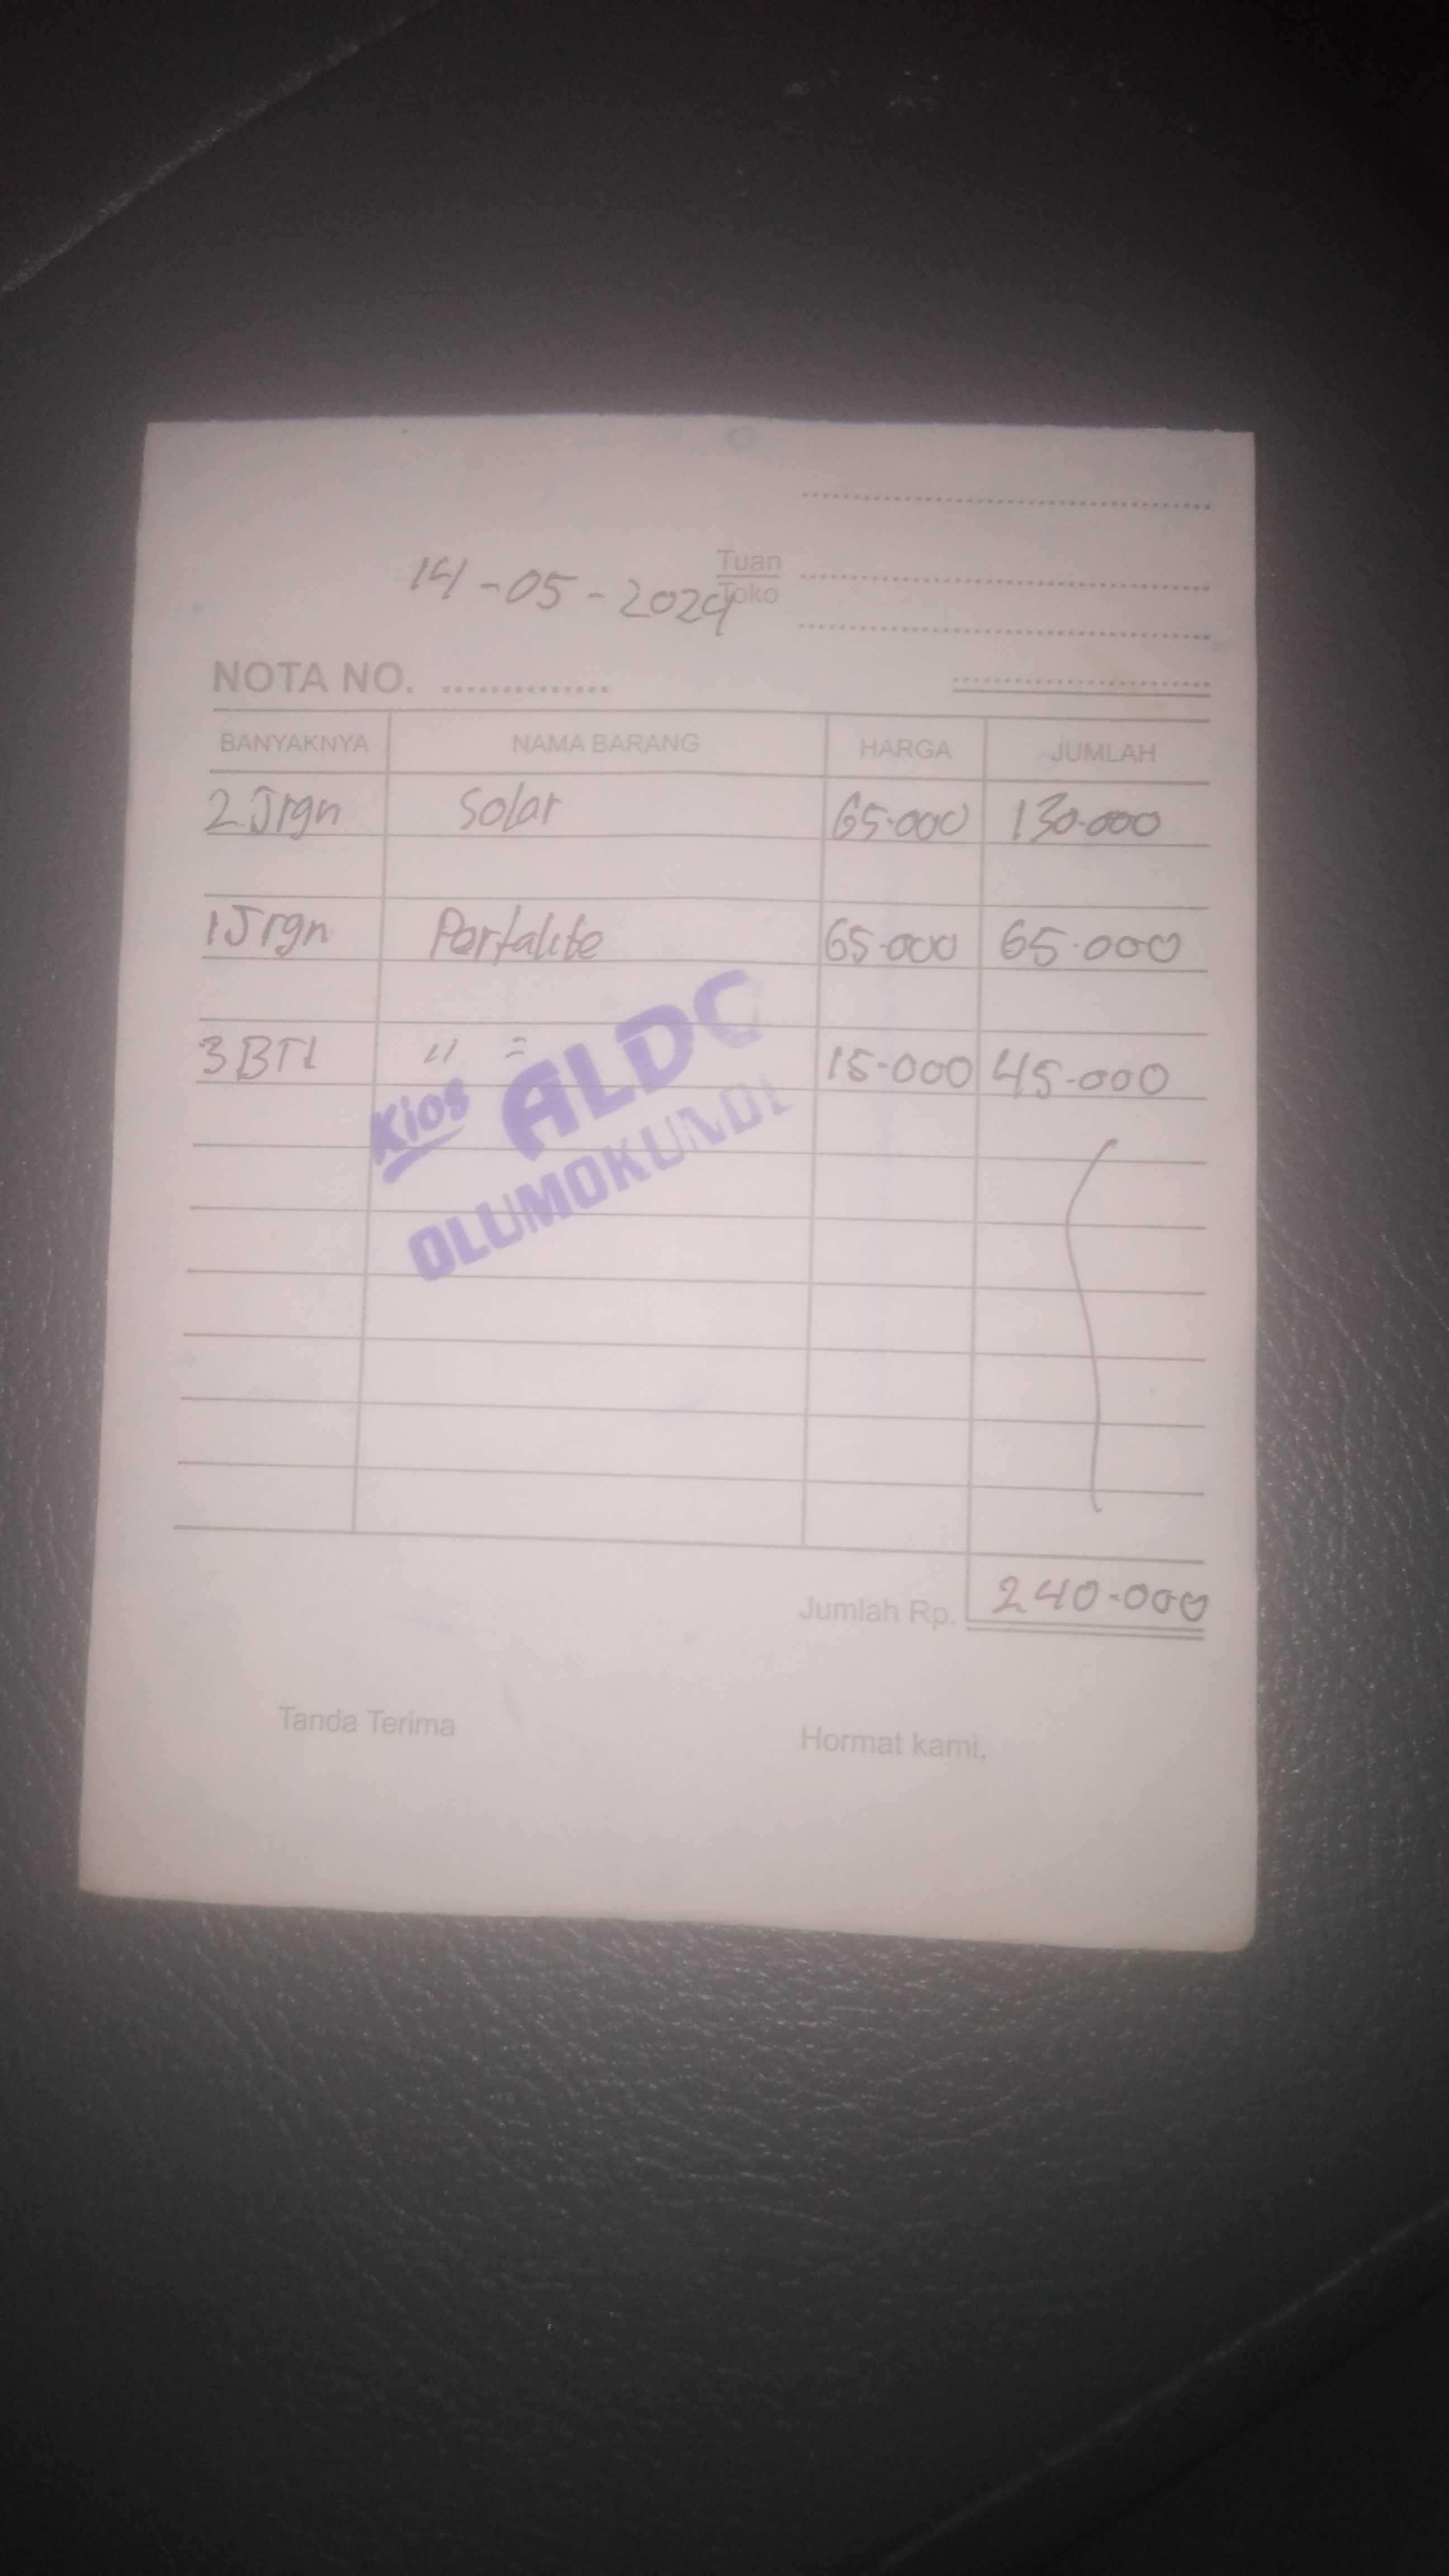 14-05-2024
Tuan
Toko
NOTA NO. ..............
BANYAKNYA NAMA BARANG HARGA JUMLAH
2 Jrgn Solar 65.000 130.000
1 Jrgn Pertalite 65.000 65.000
3 BTL " = 15.000 45.000
Kios ALDO
OLUMOKUNDE
Jumlah Rp. 240.000
Tanda Terima Hormat kami,